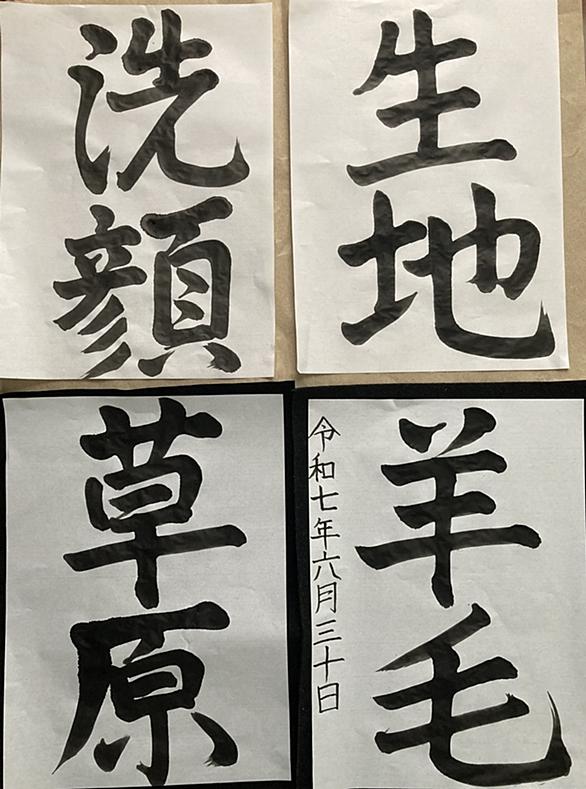 洗顔
生地
草原
羊毛
令和七年六月三十日